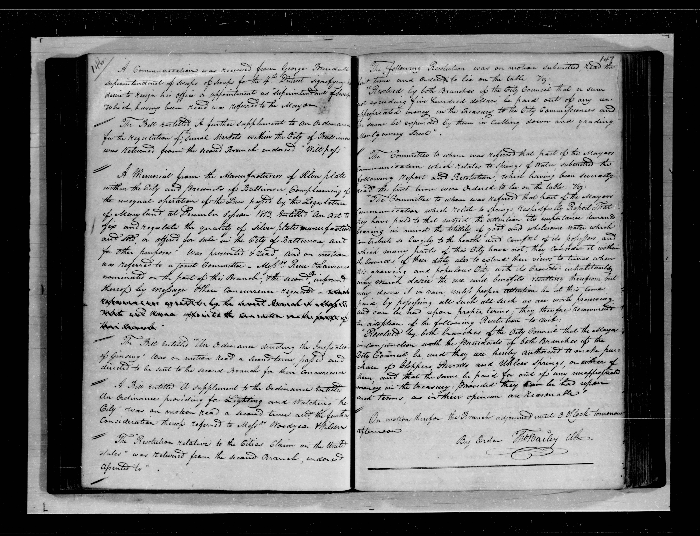 146
A Communication was received from George
superintendent of Sweeps of Sweeps for the 4th District signifying
desire to resign his office & appointment as Superintendent
Which having been read was referred to the Mayor
The Bill entitled A further supplement to an Ordinance
for the regulation of Several Markets within the City of Baltimore
was returned from the second Branch endorsed "Will pass"
A Memorial from the Manufacturers of Silver plate
within the City and Precincts of Baltimore Complaining of
the unequal operation of the Law passed by the Legislature
of Maryland at December Session 1813 entitled An Act to
fix and regulate the quality of Silver plate manufactured
and sold, or offered for sale in the City of Baltimore and
for other purposes" Was presented & read, and on motion
was referred to a joint Committee -
nominated on the part of this Branch, the second informed
thereof by message & their Concurrence requested
The Bill entitled "An Ordinance directing the Inspection
of Ginseng" Was on motion read a second time passed and
directed to be sent to the second Branch for their Concurrence
A Bill entitled A Supplement to the Ordinance entitled
An Ordinance providing for Lighting and Watching the
City" was on motion read a second time and the further
Consideration thereof referred to Messrs Woodyear
The "Resolution relative to the Cities Claim on the United
States" was returned from the second Branch, endorsed
assented to".
147
The following Resolution was on motion submitted read the
first time and ordered to lie on the table Viz:
"Resolved by both Branches of the City Council that a sum
not exceeding five hundred dollars be paid out of any
unappropriated money in the treasury to the City Commissioners and
to be expended by them in cutting down and grading
Montgomery Street"
The Committee to whom was referred that part of the Mayors
Communication which relates to Springs of Water submitted the
following Report and Resolution, which having been severally
read the first time were Ordered to lie on the table Viz:
The Committee to whom was referred that part of the Mayors
Communication which relate to Springs Respectfully Report That
they have paid to that subject the attention its importance demands
knowing in
conducive so largely to the health and comfort of its Citizens and
which many parts of this City have not, they Consider it within
the limits of their duty also to extend their views to times when
the growing and populous City with its
may much desire the use and benefits resulting therefrom but
may desire it in vain until proper attention is at this time
paid by possessing all such
and can be had upon proper terms, they therefore recommend
the adoption of the following Resolution to wit;
"Resolved by both branches of the City Council that the Mayor
in conjunction with the Presidents of both Branches of the
City Council be and they are hereby authorized to make purchase
of Cloppers
them, and that the same be paid for out of any unappropriated
money in the treasury, provided they can be had upon
such terms as in their opinion are reasonable"
On motion thereof the Branch adjourned until 3 OClock tomorrow
afternoon
By Order